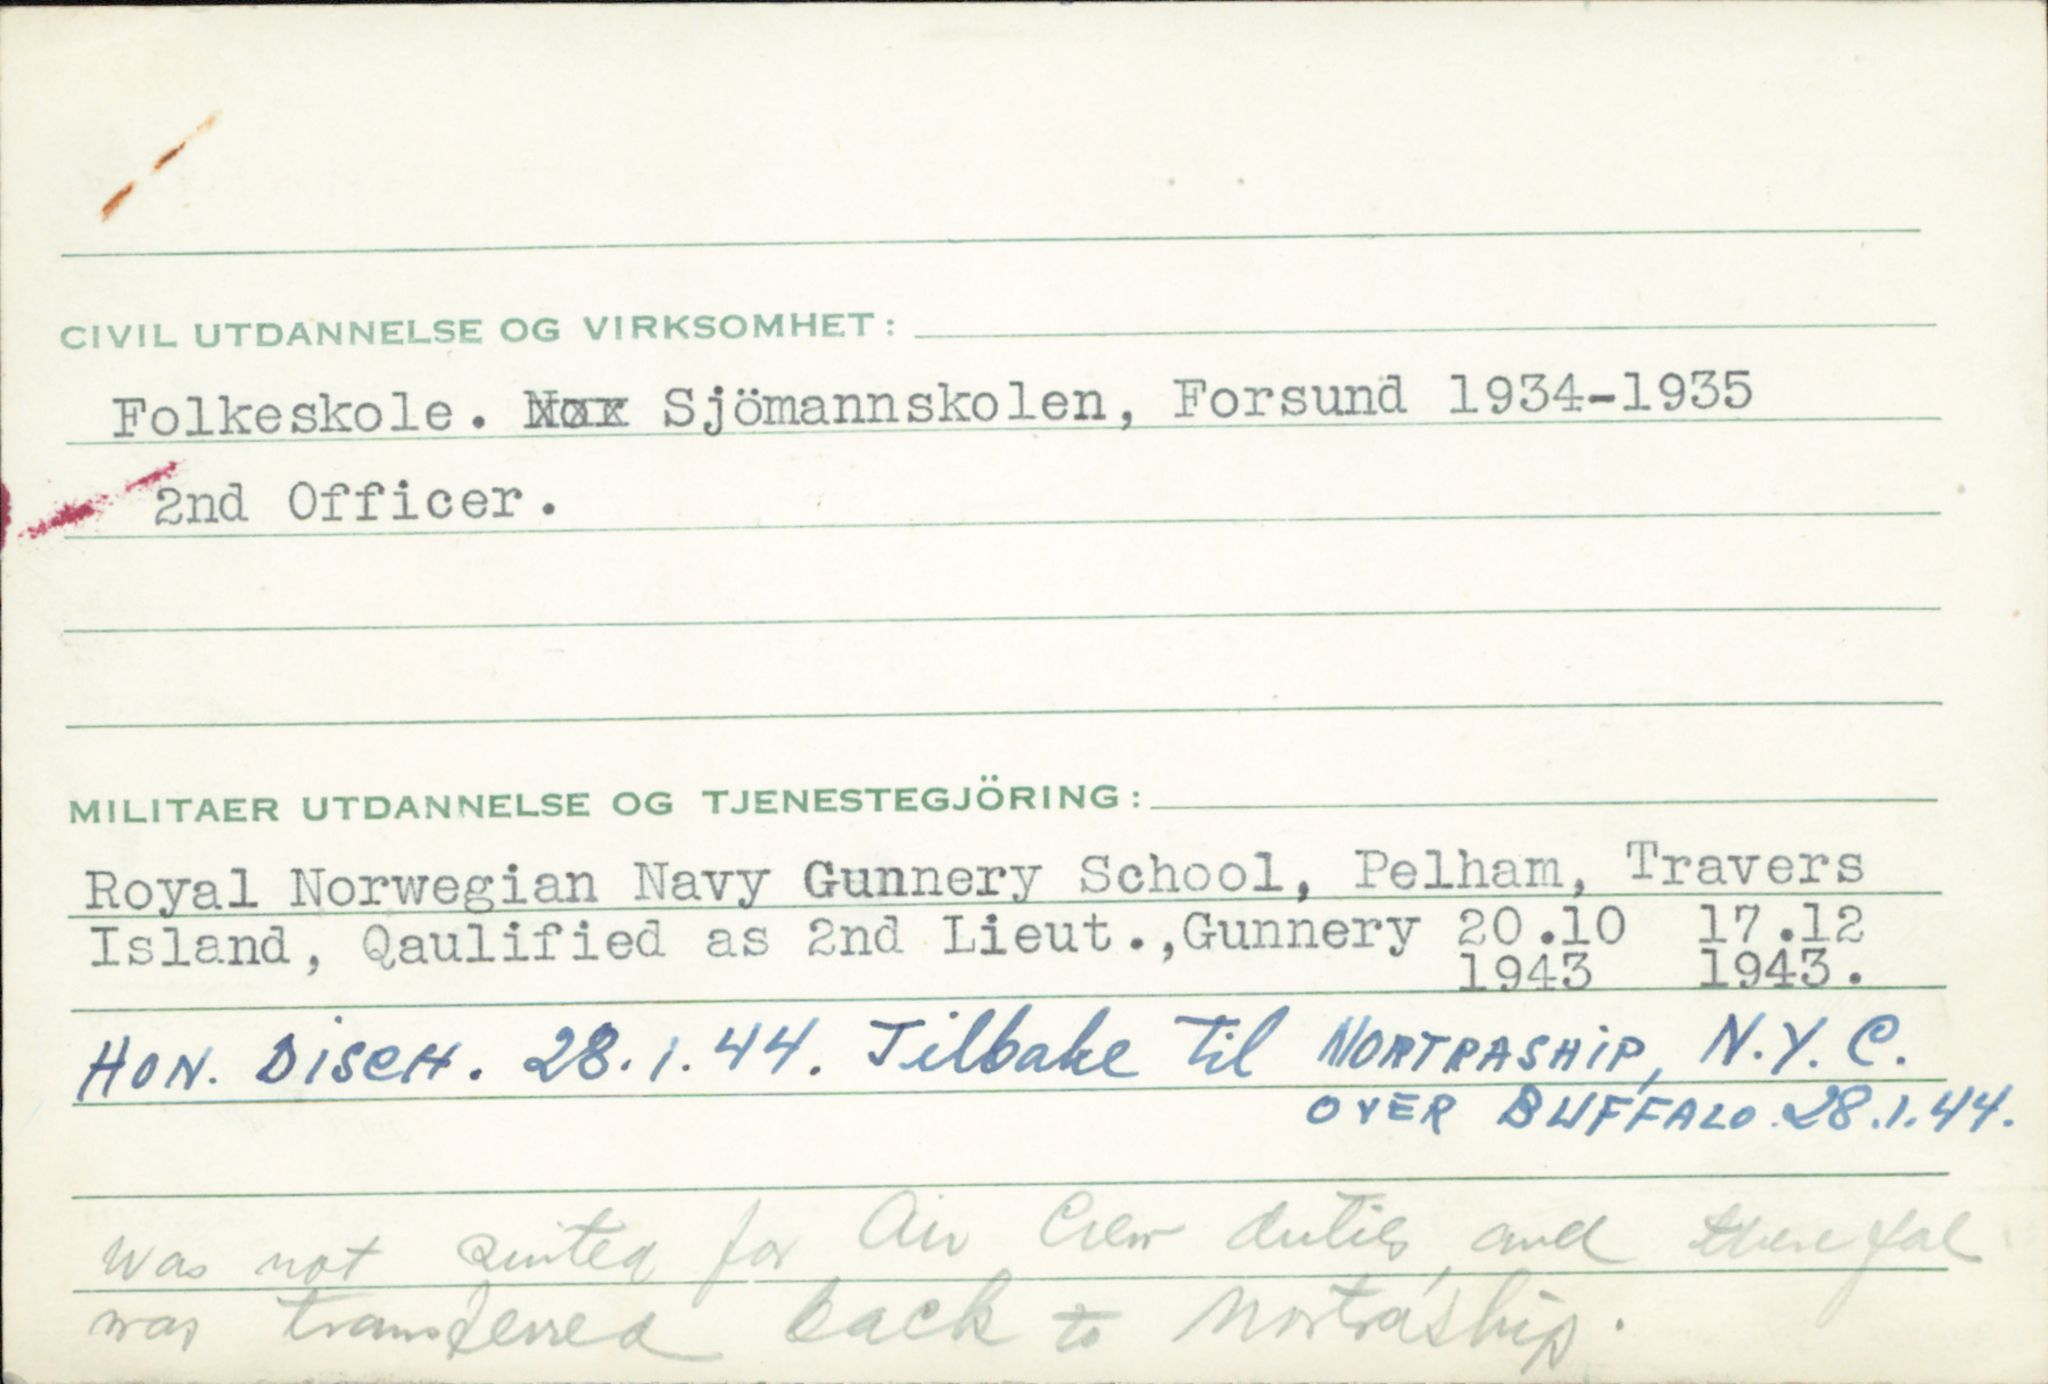 CIVIL UTDANNELSE OG VIRKSOMHET:
Folkeskole. Nøx Sjömannskolen, Forsund 1934-1935
2nd Officer.
MILITAER UTDANNELSE OG TJENESTEGJÖRING:
Royal Norwegian Navy Gunnery School, Pelham, Travers
Island, Qaulified as 2nd Lieut., Gunnery 20.10 17.12
1943 1943.
HON. DISCH. 28.1.44. Tilbake til NORTRASHIP, N.Y.C.
OVER BUFFALO 28.1.44.
Was not suited for Air Crew duties, and therefor
was transferred back to Nortraship.